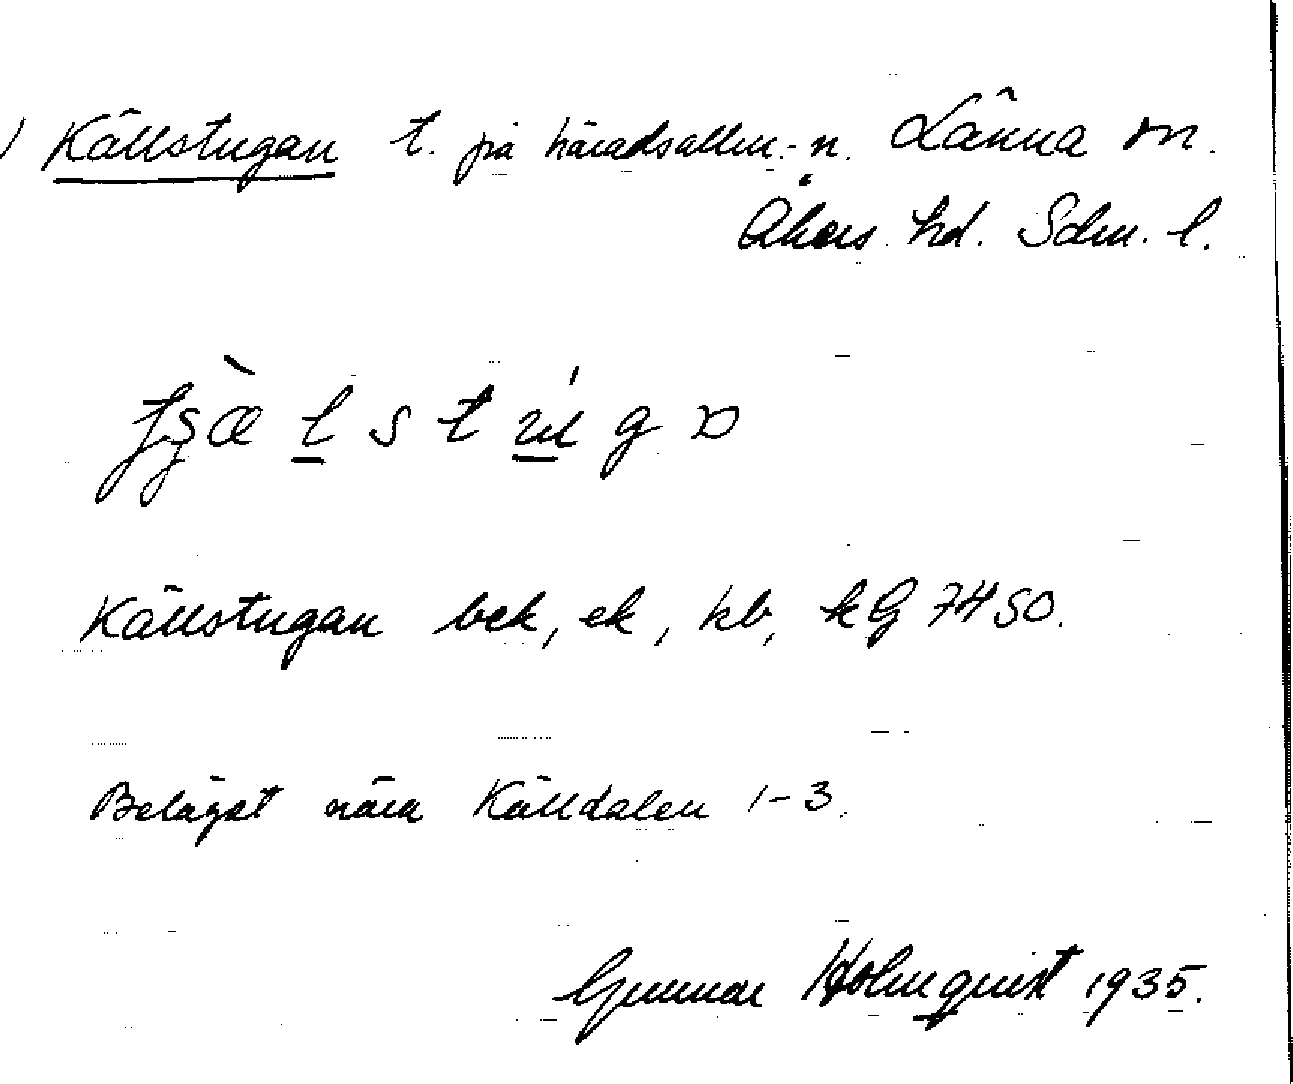 ) Källstugan t. på häradsallm.-n. Länna sn.
Åkers hd. Sdm. l.
Källstugan bek, ek, kb, kG 7450.
Beläget nära Källdalen 1-3.
Gunnar Holmquist 1935.